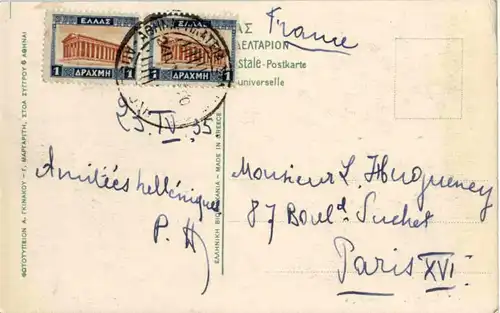 France
ΕΛΛΑΣ ΕΛΛΑΣ
1 ΔΡΑΧΜΗ 1 1 ΔΡΑΧΜΗ 1
ΑΣ
ΔΕΛΤΑΡΙΟΝ
stale-Postkarte
universelle
23.IV.35
Amitiés helléniques
P. H
Monsieur L. Hugueney
87 Boul.d Suchet
Paris XVI
ΦΩΤΟΤΥΠΕΙΟΝ Α. ΓΚΙΝΑΚΟΥ - Γ. ΜΑΡΓΑΡΙΤΗ, ΣΤΟΑ ΣΥΓΓΡΟΥ 6 ΑΘΗΝΑΙ
ΕΛΛΗΝΙΚΗ ΒΙΟΜΗΧΑΝΙΑ - MADE IN GREECE